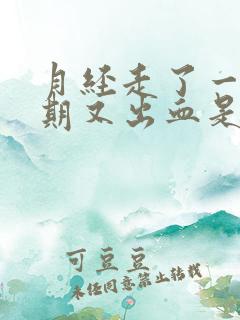 月经走了一
期又出血是
可豆豆
未经同意禁止转载